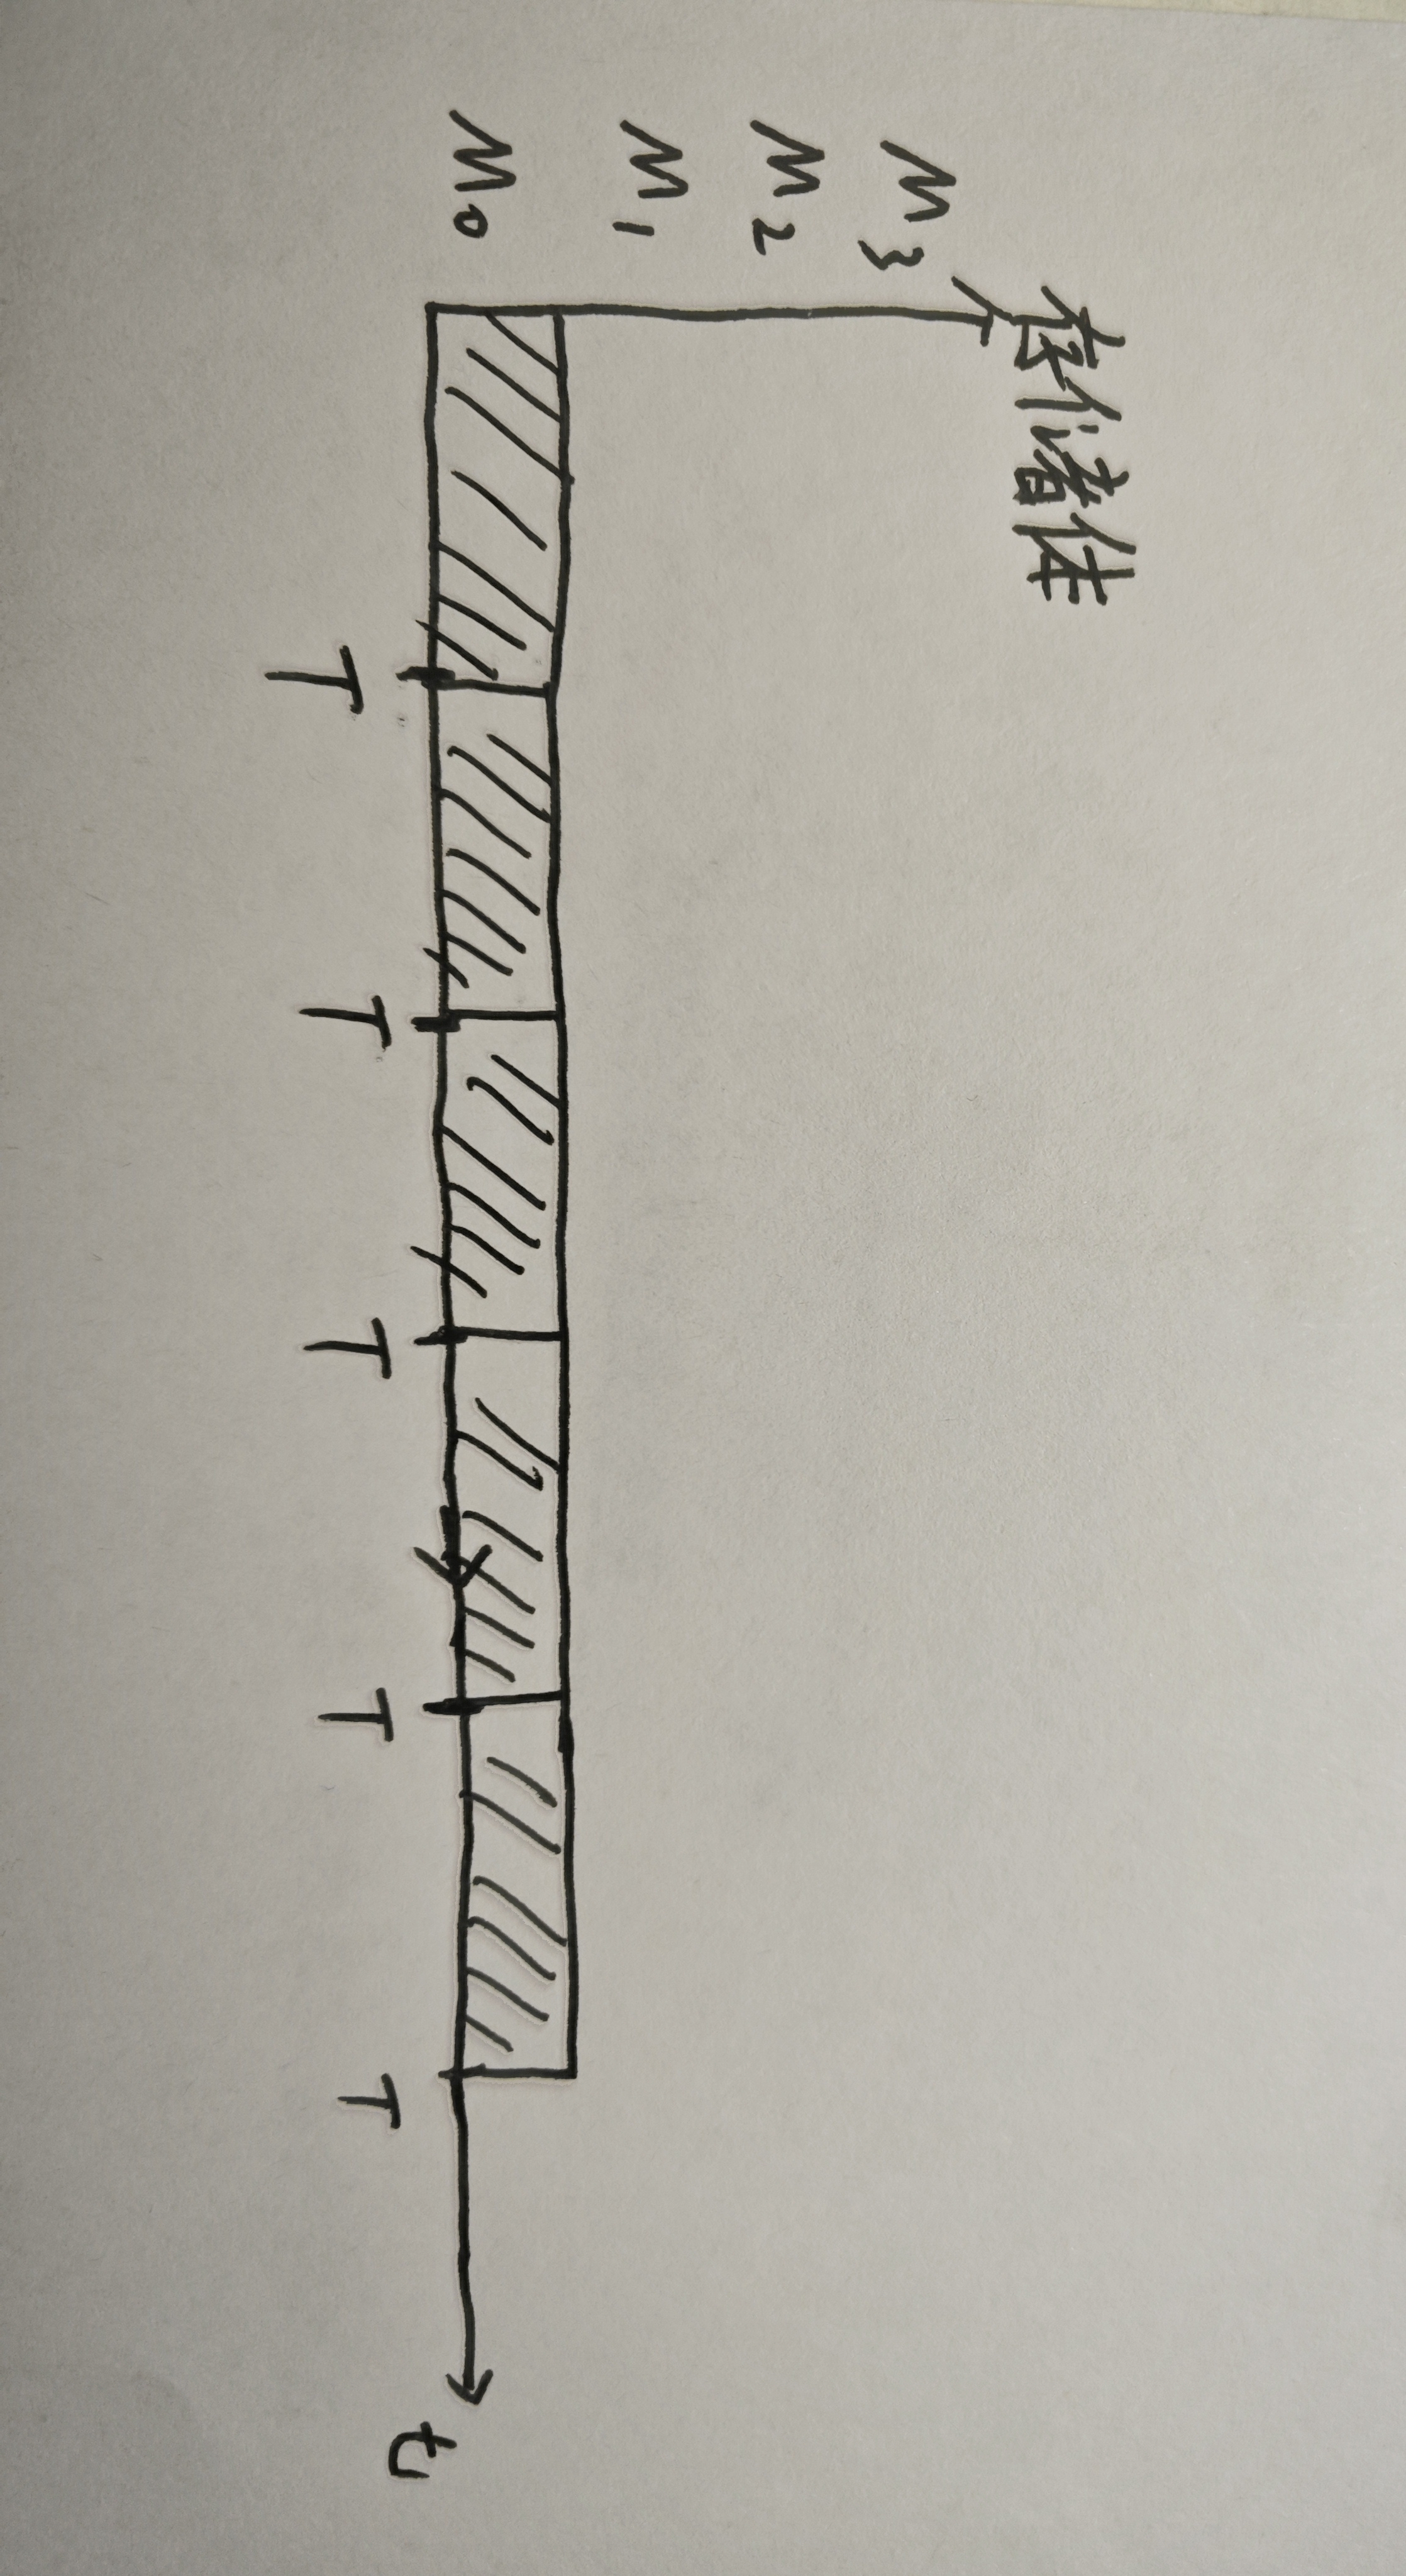 存储体
M3
M2
M1
M0
t
T T T T T